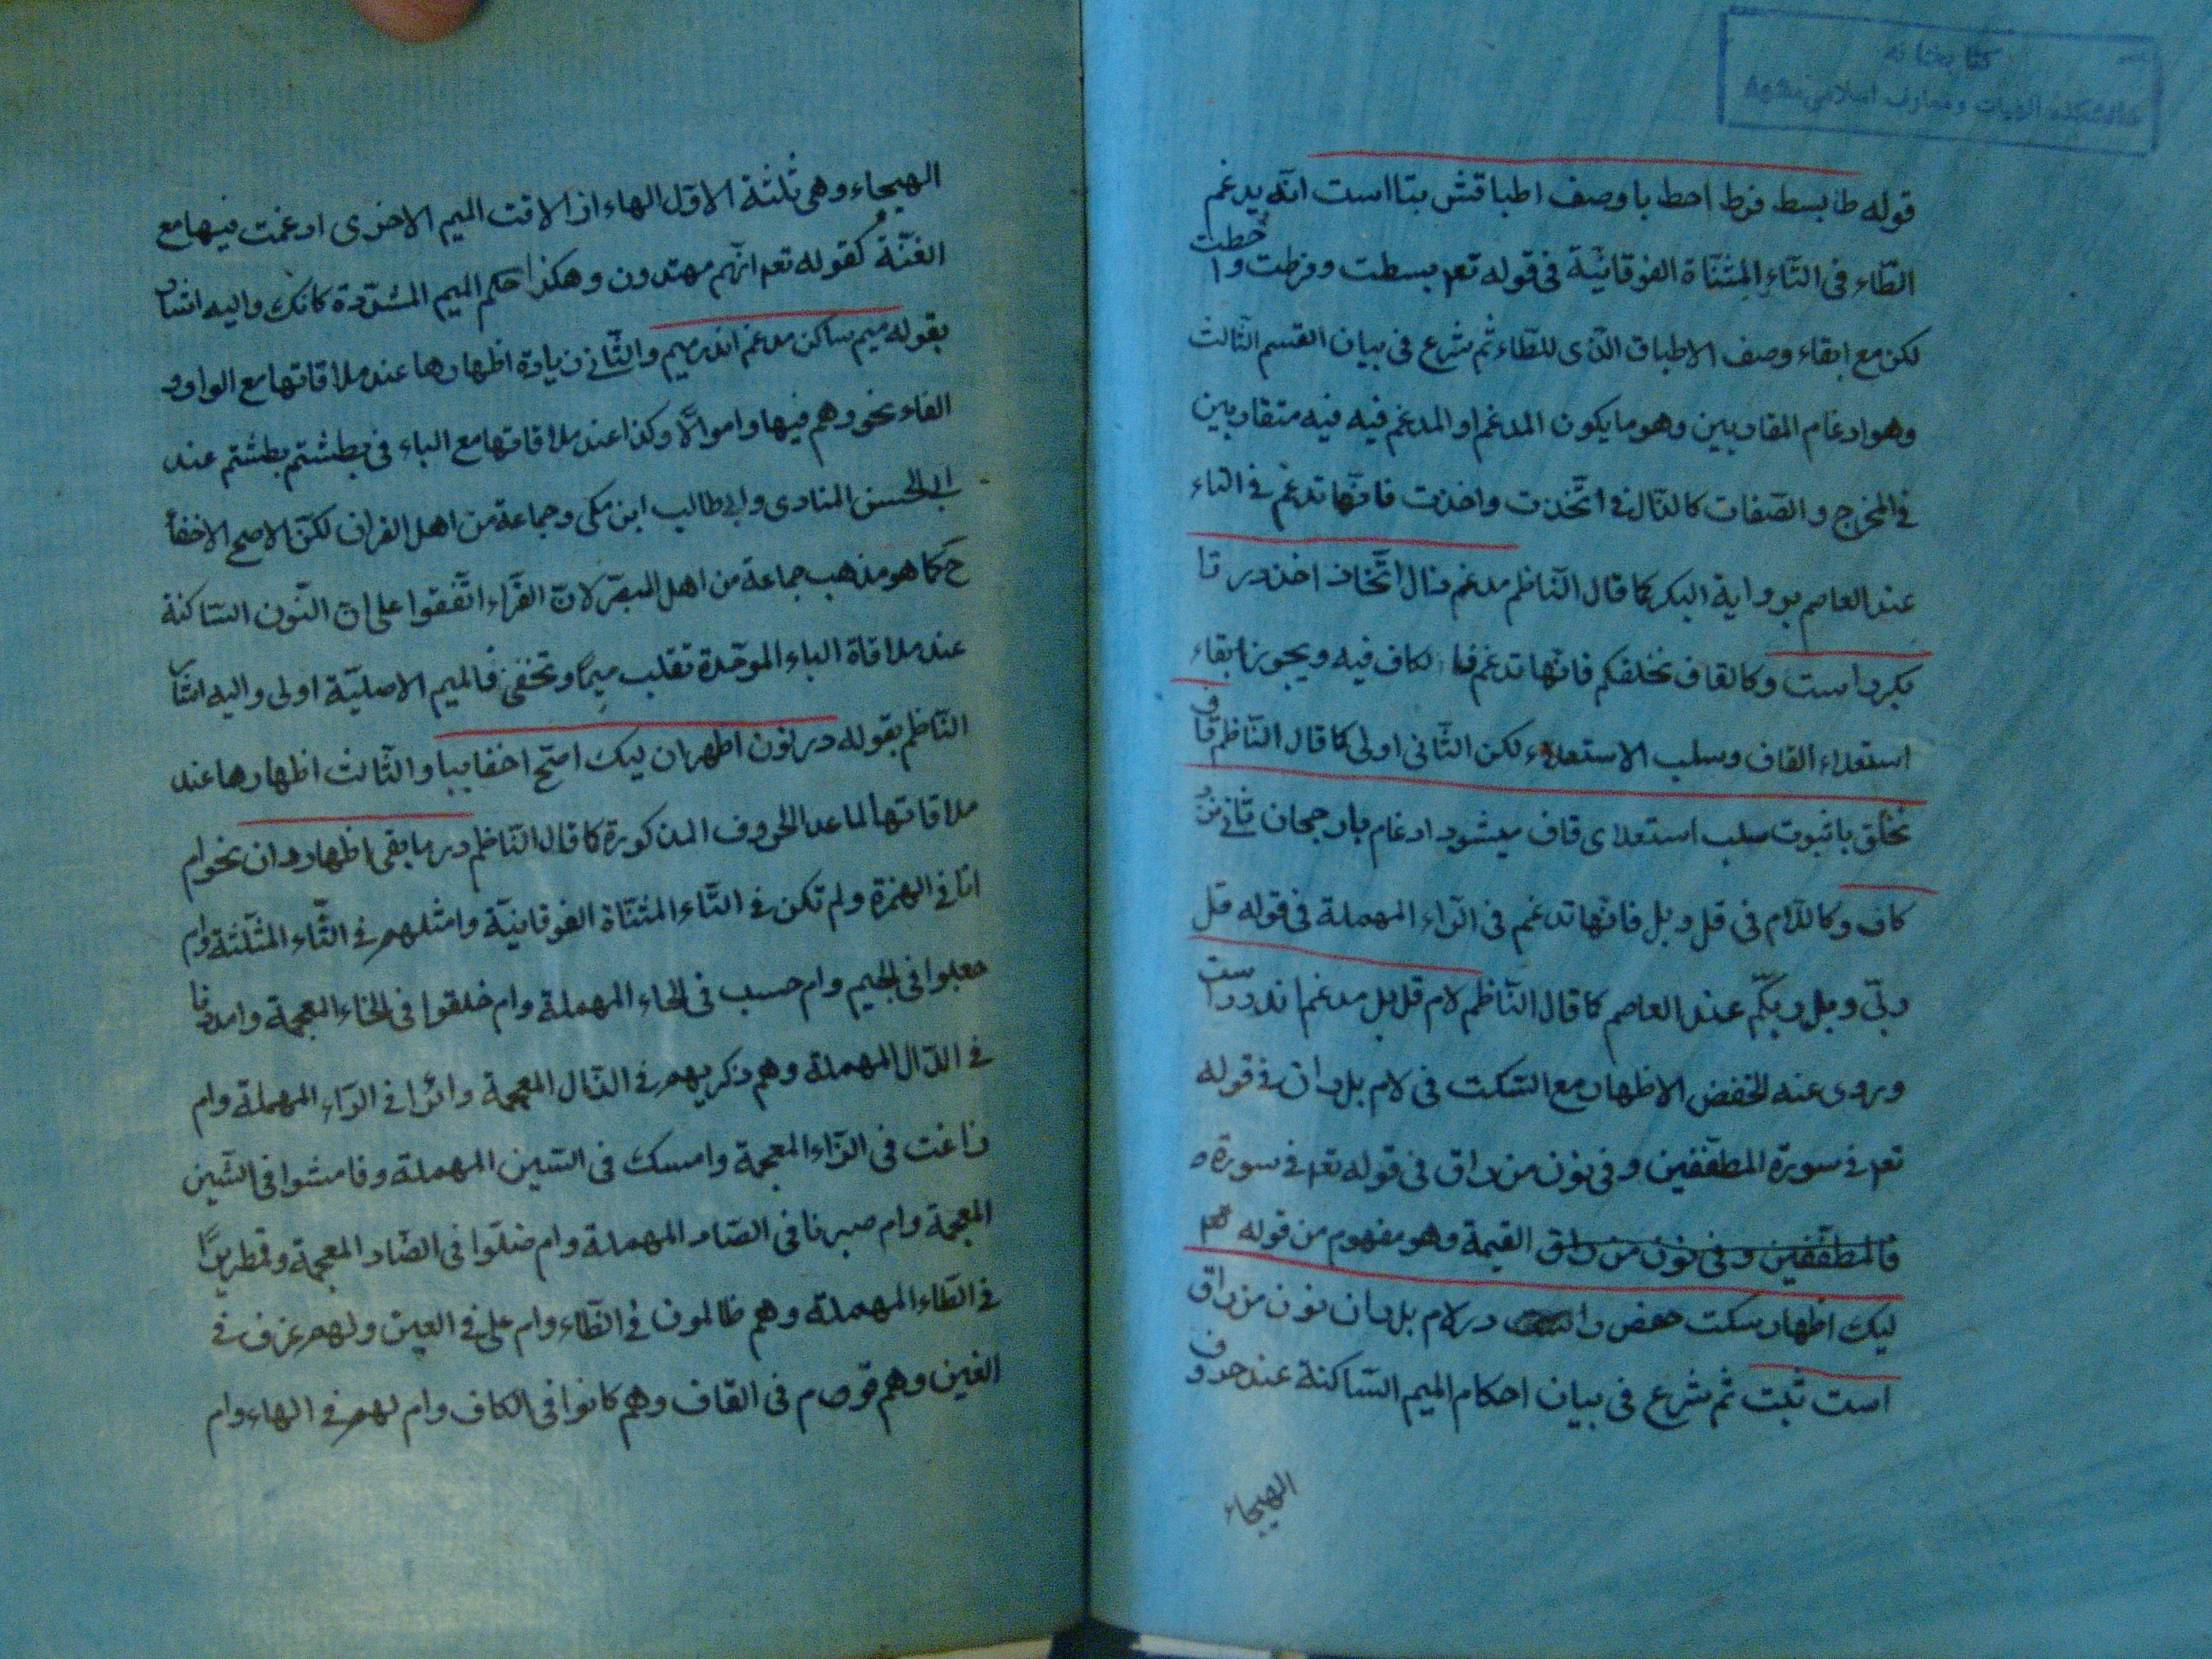 كتابخانه
دانشكده الهيات و معارف اسلامى مشهد
قوله طا بسط فرط احط با وصف اطباقش بتا است انّه يدغم
الطّاء فى التّاء المثنّاة الفوقانيّة فى قوله تعم بسطت و فرطت و احطت
لكن مع ابقاء وصف الاطباق الذّى للطّاء ثم شرع فى بيان القسم الثّالث
وهو ادغام المقاربين وهو مايكون المدغم او المدغم فيه فيه متقاربين
فى المخرج و الصّفات كالذّال فى اتّخذت واخذت فانّها تدغم فى التاء
عند العاصم برواية البكر كما قال النّاظم مدغم ذال اتّخاذ اخذ در تا
بكر است وكالقاف نخلقكم فانّها تدغم الكاف فيه ويجوز ابقاء
استعلاء القاف وسلب الاستعلاء لكن الثّانى اولى كما قال النّاظم قاف
نخلق با ثبوت سلب استعلاى قاف ميشود ادغام با رجحان ثانى نزد
كاف وكاللّام فى قل وبل فانّها تدغم فى الرّاء المهملة فى قوله قل
ربّى وبل ربّكم عند العاصم كما قال النّاظم لام قل بل مدغم اندر راست
وروى عنه لحفص الاظهار مع السّكت فى لام بل ران فى قوله
تعم فى سورة المطفّفين وفى نون من راق فى قوله تعم فى سورة
فالمطفّفين وفى نون من راق القيمة وهو مفهوم من قوله
ليك اظهار سكت حفص را در لام بل ران نون من راق
است ثبت ثم شرع فى بيان احكام الميم السّاكنة عند حروف
الهيجاء
الهيجاء وهى ثلثة الاوّل الهاء اذ الاقت الميم الاخرى ادغمت فيها مع
الغنّة كقوله تعم انّهم مهتدون وهكذا حكم الميم المشدّدة كانك واليه اشار
بقوله ميم ساكن مدغم اندر ميم والثّانى زيادة اظهارها عند ملاقاتها مع الواو و
الفاء نحو وهم فيها واموالا وكذا عند ملاقاتها مع الباء فى بطشتم بطشتم عند
ابى الحسن المنادى وابى طالب ابن مكى وجماعة من اهل العراق لكنّ الاصح الاخفا
ح كما هو مذهب جماعة من اهل المصر لانّ القرّاء اتّفقوا على ان النّون السّاكنة
عند ملاقاة الباء الموحّدة تقلب ميمًا وتخفى فالميم الاصليّة اولى واليه اشار
النّاظم بقوله در نون اظهران ليك اصّح اخفا ببا والثّالث اظهارها عند
ملاقاتها لماعدا الحروف المذكورة كما قال النّاظم در مابقى اظهار دان نحو ام
انا فى الهمزة ولم تكن فى التّاء المثنّاة الفوقانيّة وامثلهم فى الثّاء المثلّثة وام
جعلوا فى الجيم وام حسب فى الحاء المهملة وام خلقوا فى الخاء المعجمة وامددنا
فى الدّال المهملة وهم ذكريهم فى الذّال المعجمة وامرًا فى الرّاء المهملة وام
زاغت فى الزّاء المعجمة وامسك فى السّين المهملة وفامشوا فى الشّين
المعجمة وام صبرنا فى الصّاد المهملة وام ضلّوا فى الضّاد المعجمة وقمطريرًا
فى الطّاء المهملة وهم ظالمون فى الظّاء وام على فى العين ولهم غرف فى
الغين وهم قوم فى القاف وهم كانوا فى الكاف وام لهم فى الهاء وام